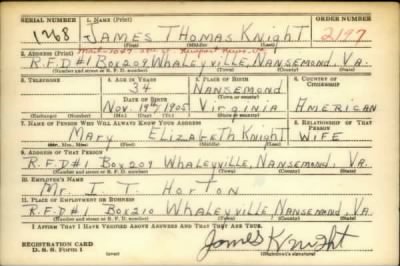 SERIAL NUMBER 1. NAME (Print) ORDER NUMBER
1268 JAMES THOMAS KNIGHT 2197
(First) (Middle) (Last)
2. ADDRESS (Print)
R.F.D#1 BOX209 WHALEYVILLE, NANSEMOND, VA.
(Number and street or R. F. D. number) (Town) (County) (State)
3. TELEPHONE 4. AGE IN YEARS 5. PLACE OF BIRTH 6. COUNTRY OF CITIZENSHIP
34 NANSEMOND
DATE OF BIRTH (Town or county)
Nov. 19th 1905 Virginia AMERICAN
(Exchange) (Number) (Mo.) (Day) (Yr.) (State or country)
7. NAME OF PERSON WHO WILL ALWAYS KNOW YOUR ADDRESS 8. RELATIONSHIP OF THAT PERSON
MARY ELIZABETH KNIGHT WIFE
(Mr., Mrs., Miss) (First) (Middle) (Last)
9. ADDRESS OF THAT PERSON
R.F.D#1 BOX209 WHALEYVILLE, NANSEMOND, VA.
(Number and street or R. F. D. number) (Town) (County) (State)
10. EMPLOYER'S NAME
Mr. I. T. HORTON
11. PLACE OF EMPLOYMENT OR BUSINESS
R.F.D#1 BOX210 WHALEYVILLE, NANSEMOND, VA.
(Number and street or R. F. D. number) (Town) (County) (State)
I AFFIRM THAT I HAVE VERIFIED ABOVE ANSWERS AND THAT THEY ARE TRUE.
REGISTRATION CARD
D. S. S. Form 1
James Knight
(Registrant's signature)